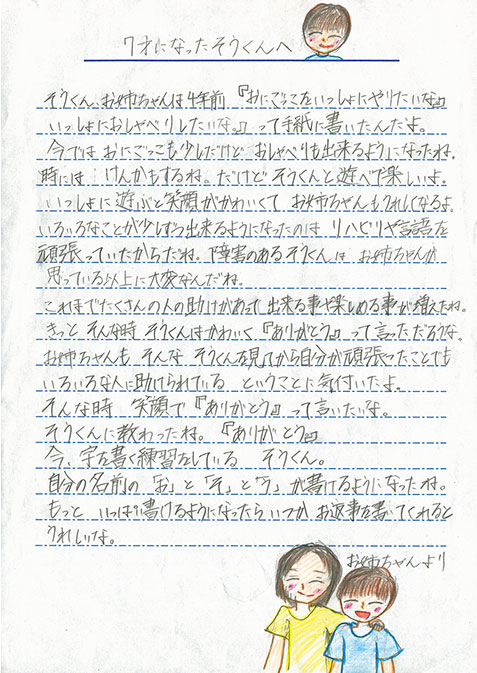 7才になったそうくんへ
そうくん、お姉ちゃんは4年前『おにごっこをいっしょにやりたいな』
いっしょにおしゃべりしたいな。』って手紙に書いたんだよ。
今ではおにごっこも少しだけどおしゃべりも出来るようになったね。
時にはけんかもするね。だけどそうくんと遊べて楽しいよ。
いっしょに遊ぶと笑顔がかわいくてお姉ちゃんもうれしくなるよ。
いろいろなことが少しずつ出来るようになったのはリハビリや言語を
頑張っていたからだね。障害のあるそうくんはお姉ちゃんが
思っている以上に大変なんだね。
これまでたくさんの人の助けがあって出来る事や楽しめる事が増えたね。
きっとそんな時そうくんはかわいく『ありがとう』って言っただろうな。
お姉ちゃんもそんなそうくんを見てから自分が頑張ったことでも
いろいろな人に助けられているということに気付いたよ。
そんな時笑顔で『ありがとう』って言いたいな。
そうくんに教わったね。『ありがとう』
今、字を書く練習をしているそうくん。
自分の名前の「お」と「そ」と「う」が書けるようになったね。
もっといっぱい書けるようになったらいつかお返事を書いてくれると
うれしいな。
お姉ちゃんより